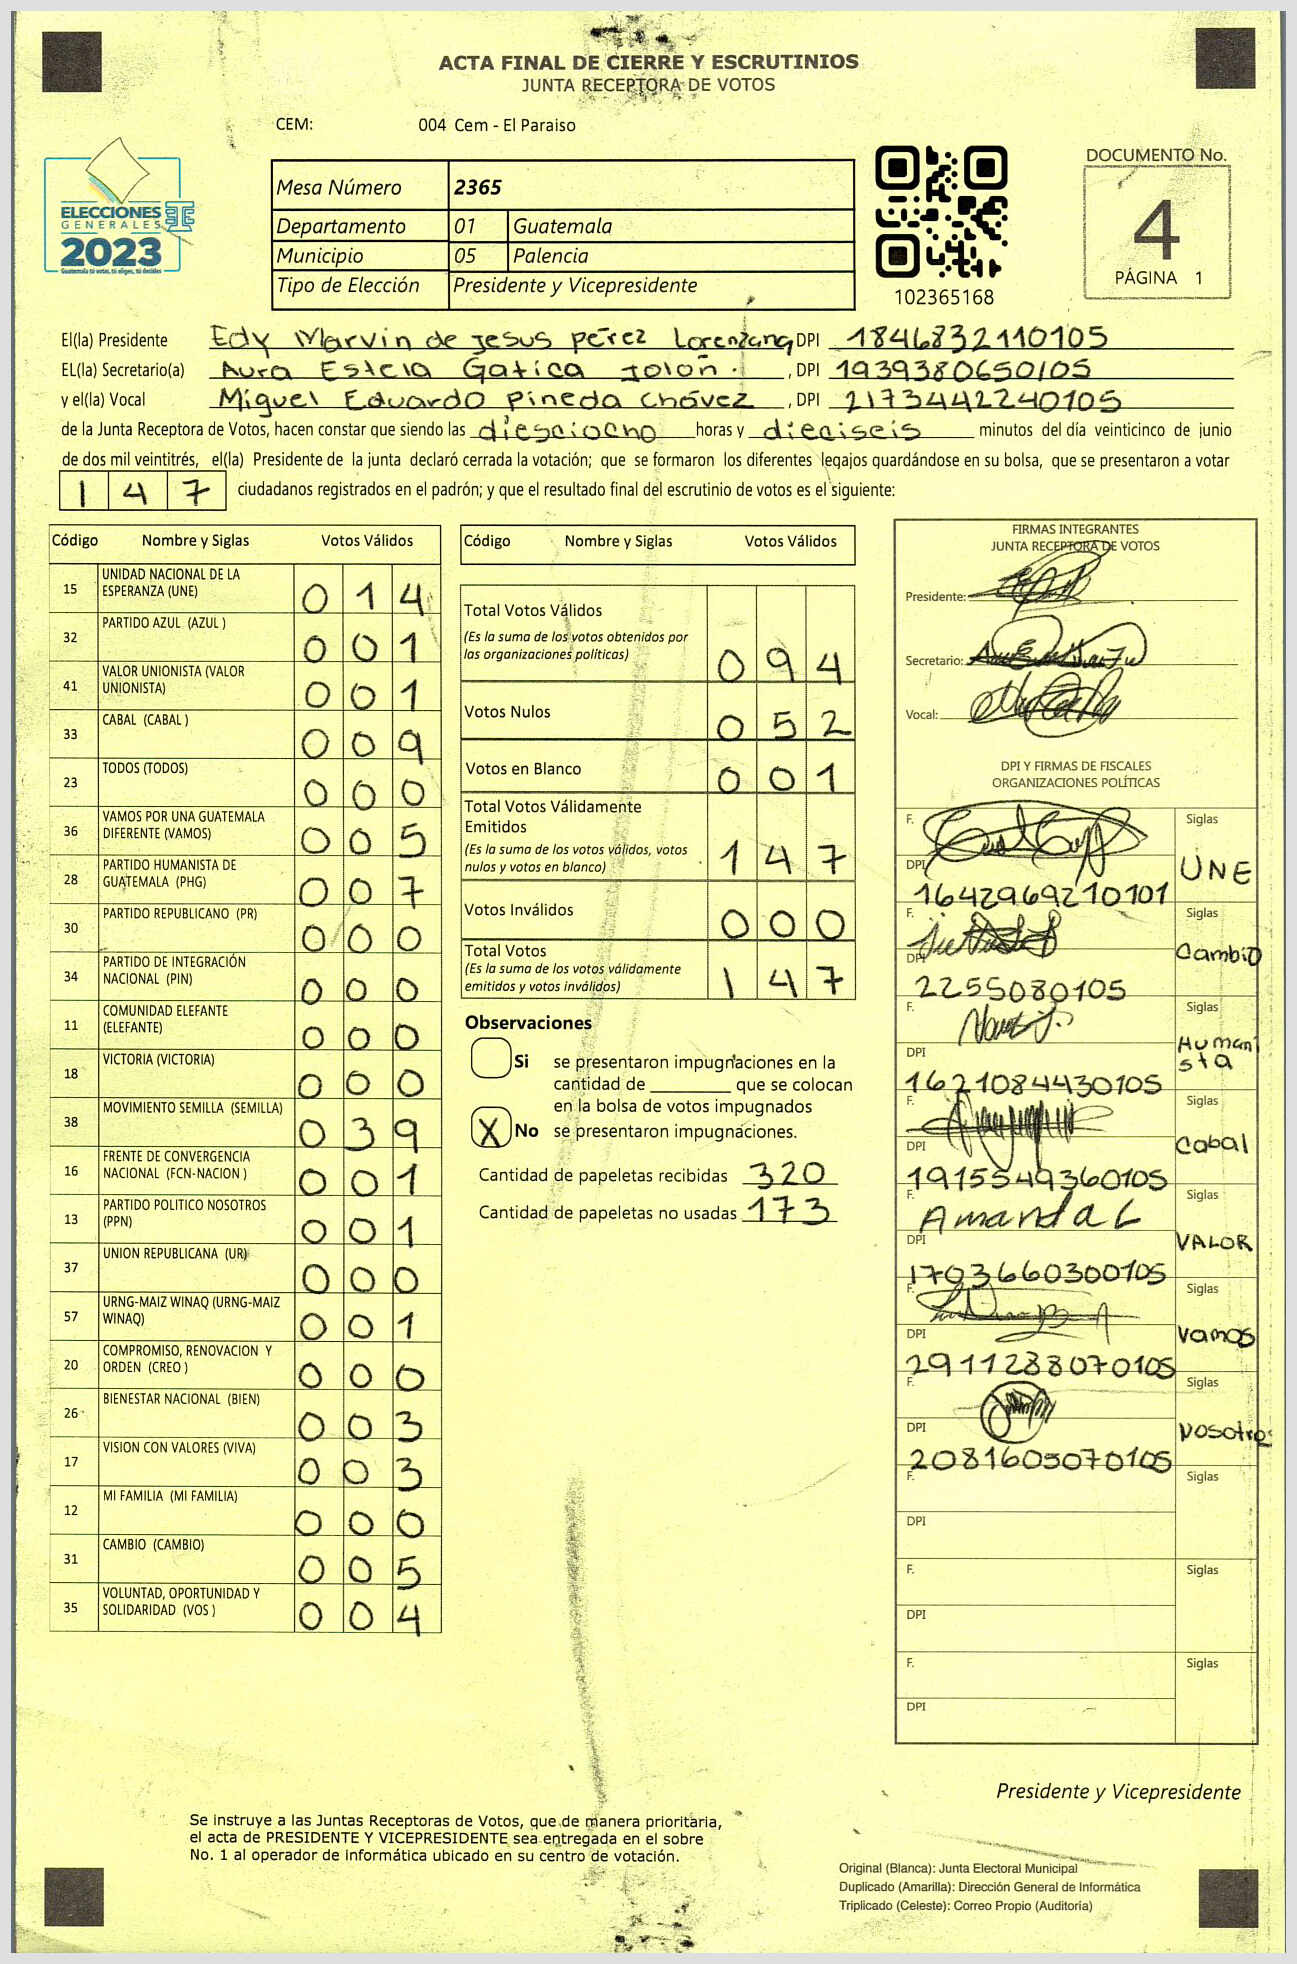 ACTA FINAL DE CIERRE Y ESCRUTINIOS
JUNTA RECEPTORA DE VOTOS
CEM: 004 Cem - El Paraiso
ELECCIONES
GENERALES
2023
Guatemala tú votas, tú eliges, tú decides
Mesa Número 2365
Departamento 01 Guatemala
Municipio 05 Palencia
Tipo de Elección Presidente y Vicepresidente
102365168
DOCUMENTO No.
4
PÁGINA 1
El(la) Presidente Edy Marvin de Jesus pérez Lorenzana DPI 1846832110105
EL(la) Secretario(a) Aura Estela Gatica Joloñ. , DPI 1939380650105
y el(la) Vocal Miguel Eduardo Pineda Chávez , DPI 2173442240105
de la Junta Receptora de Votos, hacen constar que siendo las diesciocho horas y dieciseis minutos del día veinticinco de junio
de dos mil veintitrés, el(la) Presidente de la junta declaró cerrada la votación; que se formaron los diferentes legajos guardándose en su bolsa, que se presentaron a votar
147 ciudadanos registrados en el padrón; y que el resultado final del escrutinio de votos es el siguiente:
Código Nombre y Siglas Votos Válidos
15 UNIDAD NACIONAL DE LA ESPERANZA (UNE) 014
32 PARTIDO AZUL (AZUL ) 001
41 VALOR UNIONISTA (VALOR UNIONISTA) 001
33 CABAL (CABAL ) 009
23 TODOS (TODOS) 000
36 VAMOS POR UNA GUATEMALA DIFERENTE (VAMOS) 005
28 PARTIDO HUMANISTA DE GUATEMALA (PHG) 007
30 PARTIDO REPUBLICANO (PR) 000
34 PARTIDO DE INTEGRACIÓN NACIONAL (PIN) 000
11 COMUNIDAD ELEFANTE (ELEFANTE) 000
18 VICTORIA (VICTORIA) 000
38 MOVIMIENTO SEMILLA (SEMILLA) 039
16 FRENTE DE CONVERGENCIA NACIONAL (FCN-NACION ) 001
13 PARTIDO POLITICO NOSOTROS (PPN) 001
37 UNION REPUBLICANA (UR) 000
57 URNG-MAIZ WINAQ (URNG-MAIZ WINAQ) 001
20 COMPROMISO, RENOVACION Y ORDEN (CREO ) 000
26 BIENESTAR NACIONAL (BIEN) 003
17 VISION CON VALORES (VIVA) 003
12 MI FAMILIA (MI FAMILIA) 000
31 CAMBIO (CAMBIO) 005
35 VOLUNTAD, OPORTUNIDAD Y SOLIDARIDAD (VOS ) 004
Código Nombre y Siglas Votos Válidos
Total Votos Válidos
(Es la suma de los votos obtenidos por
las organizaciones políticas) 094
Votos Nulos 052
Votos en Blanco 001
Total Votos Válidamente
Emitidos
(Es la suma de los votos válidos, votos
nulos y votos en blanco) 147
Votos Inválidos 000
Total Votos
(Es la suma de los votos válidamente
emitidos y votos inválidos) 147
Observaciones
Si se presentaron impugnaciones en la
cantidad de ________ que se colocan
en la bolsa de votos impugnados
X No se presentaron impugnaciones.
Cantidad de papeletas recibidas 320
Cantidad de papeletas no usadas 173
FIRMAS INTEGRANTES
JUNTA RECEPTORA DE VOTOS
Presidente:
Secretario:
Vocal:
DPI Y FIRMAS DE FISCALES
ORGANIZACIONES POLÍTICAS
F. Siglas
DPI 1642969210101 UNE
F. Siglas
DPI 2255080105 Cambio
F. Siglas
DPI 1621084430105 Humanista
F. Siglas
DPI 1915549360105 Cabal
F. Amanda L Siglas
DPI 1703660300105 VALOR
F. Siglas
DPI 2911288070105 Vamos
F. Siglas
DPI 2081605070105 Nosotros
F. Siglas
DPI
F. Siglas
DPI
F. Siglas
DPI
Presidente y Vicepresidente
Se instruye a las Juntas Receptoras de Votos, que de manera prioritaria,
el acta de PRESIDENTE Y VICEPRESIDENTE sea entregada en el sobre
No. 1 al operador de informática ubicado en su centro de votación.
Original (Blanca): Junta Electoral Municipal
Duplicado (Amarilla): Dirección General de Informática
Triplicado (Celeste): Correo Propio (Auditoría)